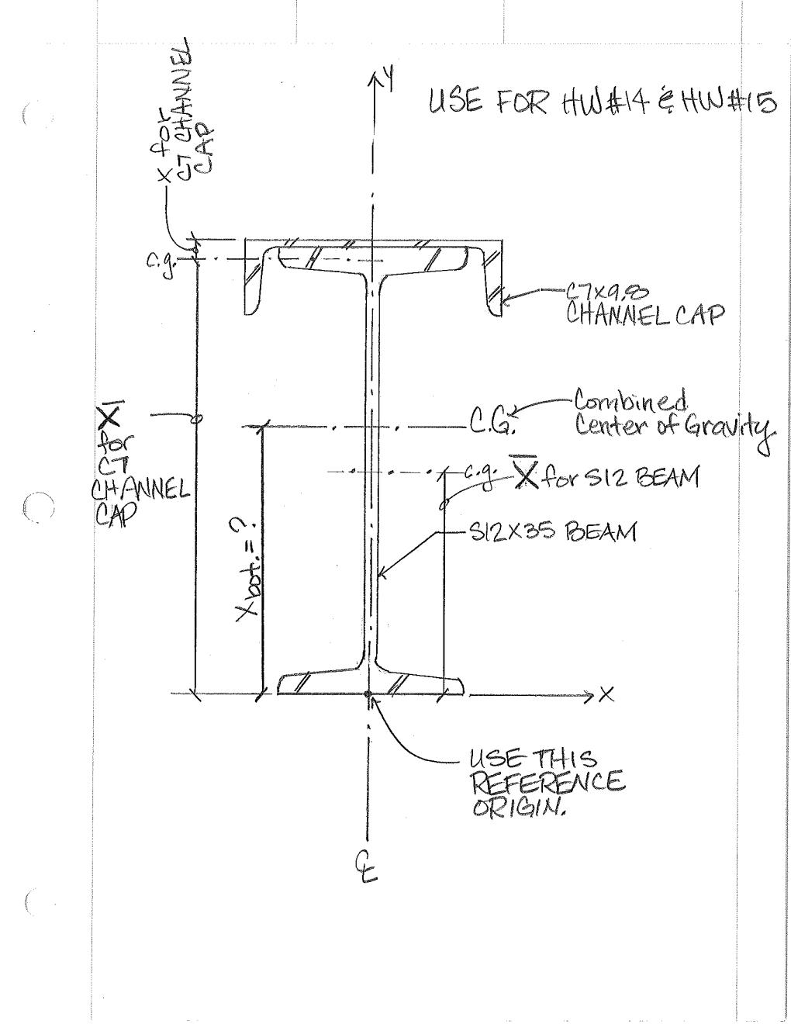 Y
USE FOR HW#14 & HW#15
X for
C7 CHANNEL
CAP
c.g.
C7X9.8
CHANNEL CAP
Combined
Center of Gravity
C.G.
X̅
for
C7
CHANNEL
CAP
c.g.
X̅ for S12 BEAM
S12X35 BEAM
Xbot. = ?
X
USE THIS
REFERENCE
ORIGIN.
℄